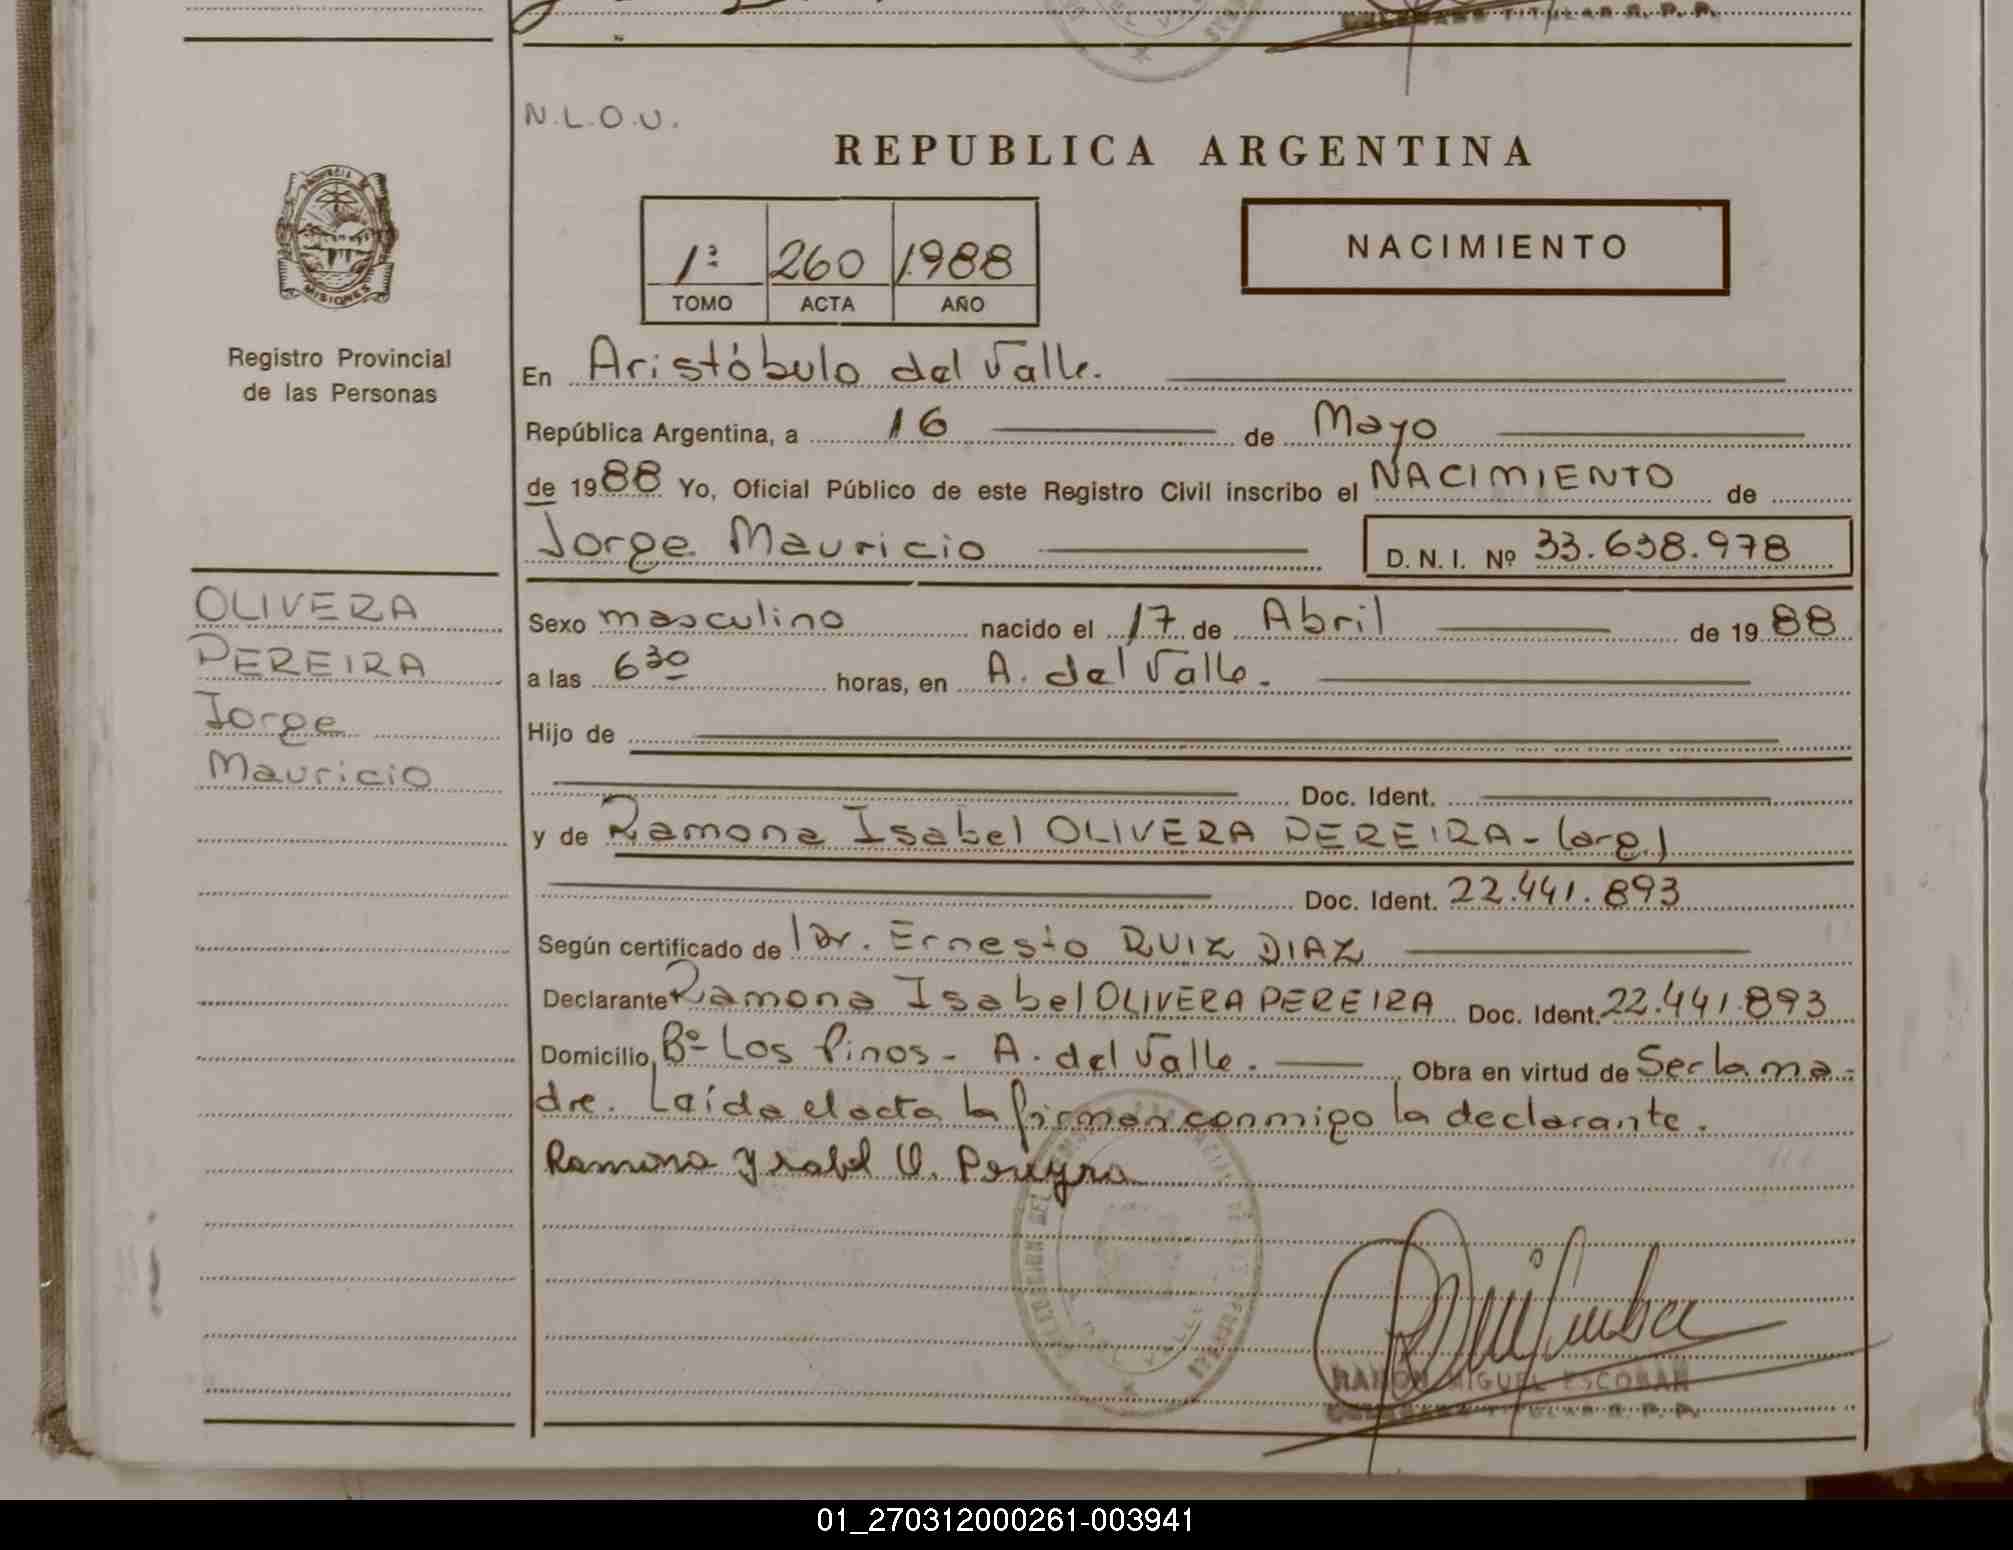 N.L.O.U.
REPUBLICA ARGENTINA
PROVINCIA DE
MISIONES
1º 260 1988
TOMO ACTA AÑO
NACIMIENTO
Registro Provincial
de las Personas
En Aristóbulo del Valle.
República Argentina, a 16 de Mayo
de 1988 Yo, Oficial Público de este Registro Civil inscribo el NACIMIENTO de
Jorge Mauricio D. N. I. Nº 33.638.978
OLIVERA
PEREIRA
Jorge
Mauricio
Sexo masculino nacido el 17 de Abril de 1988
a las 6 30 horas, en A. del Valle.
Hijo de
Doc. Ident.
y de Ramona Isabel OLIVERA PEREIRA - (arg.)
Doc. Ident. 22.441.893
Según certificado de Dr. Ernesto RUIZ DIAZ
Declarante Ramona Isabel OLIVERA PEREIRA Doc. Ident. 22.441.893
Domicilio Bº Los Pinos - A. del Valle. Obra en virtud de Ser la ma-
dre. Laída el acta la firman conmigo la declarante.
Ramona Ysabel O. Pereyra
RAMON MIGUEL ESCOBAR
DELEGADO TITULAR R. P. P.
01_270312000261-003941